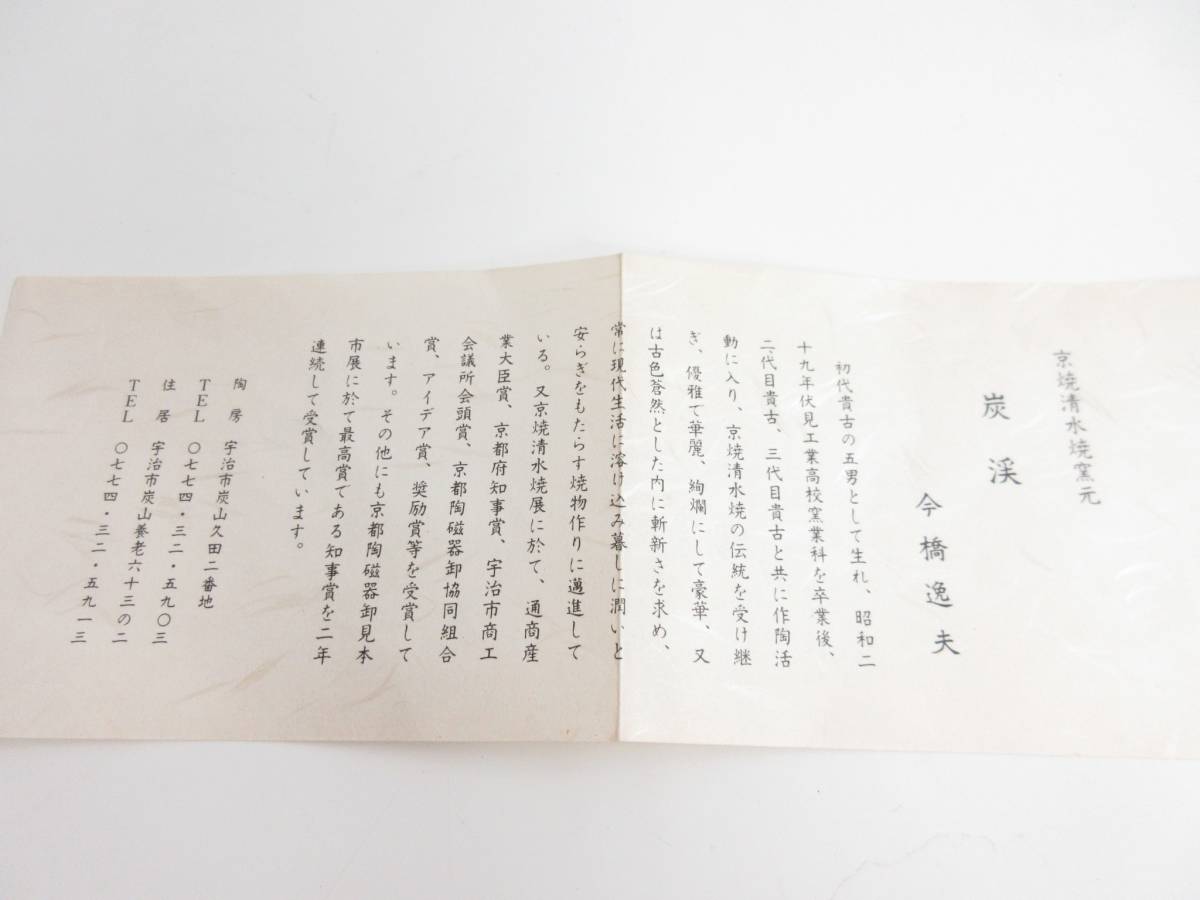 京焼清水焼窯元
炭渓
今橋逸夫
初代貴古の五男として生れ、昭和二
十九年伏見工業高校窯業科を卒業後、
二代目貴古、三代目貴古と共に作陶活
動に入り、京焼清水焼の伝統を受け継
ぎ、優雅で華麗、絢爛にして豪華、又
は古色蒼然とした内に斬新さを求め、
常に現代生活に溶け込み暮しに潤いと
安らぎをもたらす焼物作りに邁進して
いる。又京焼清水焼展に於て、通商産
業大臣賞、京都府知事賞、宇治市商工
会議所会頭賞、京都陶磁器卸協同組合
賞、アイデア賞、奨励賞等を受賞して
います。その他にも京都陶磁器卸見本
市展に於て最高賞である知事賞を二年
連続して受賞しています。
陶房 宇治市炭山久田二番地
TEL 〇七七四・三二・五九〇三
住居 宇治市炭山養老六十三の二
TEL 〇七七四・三二・五九一三